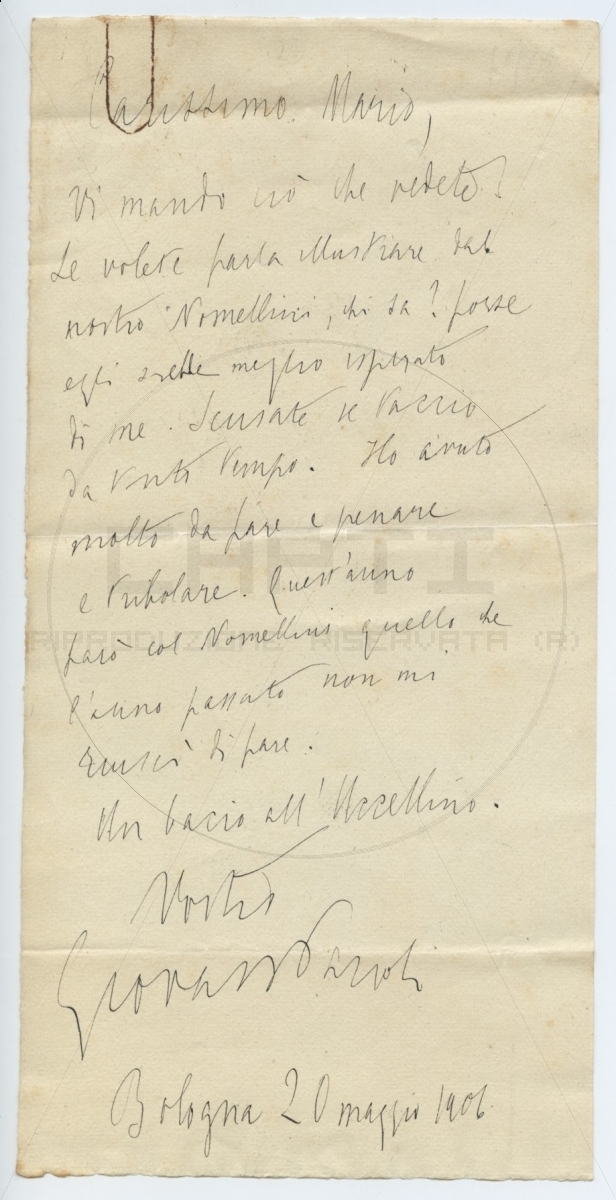 Carissimo Mario,
Vi mando ciò che vedete.
Se volete farla illustrare dal
nostro Nomellini, chi sa? forse
egli sarebbe meglio ispirato
di me. Scusate se taccio
da tanto tempo. Ho avuto
molto da fare e penare
e tribolare. Quest'anno
farò col Nomellini quello che
l'anno passato non mi
riuscì di fare.
Un bacio all'Uccellino.
Vostro
Giovanni Pascoli
Bologna 20 maggio 1906
CARTI
RIPRODUZIONE RISERVATA (R)